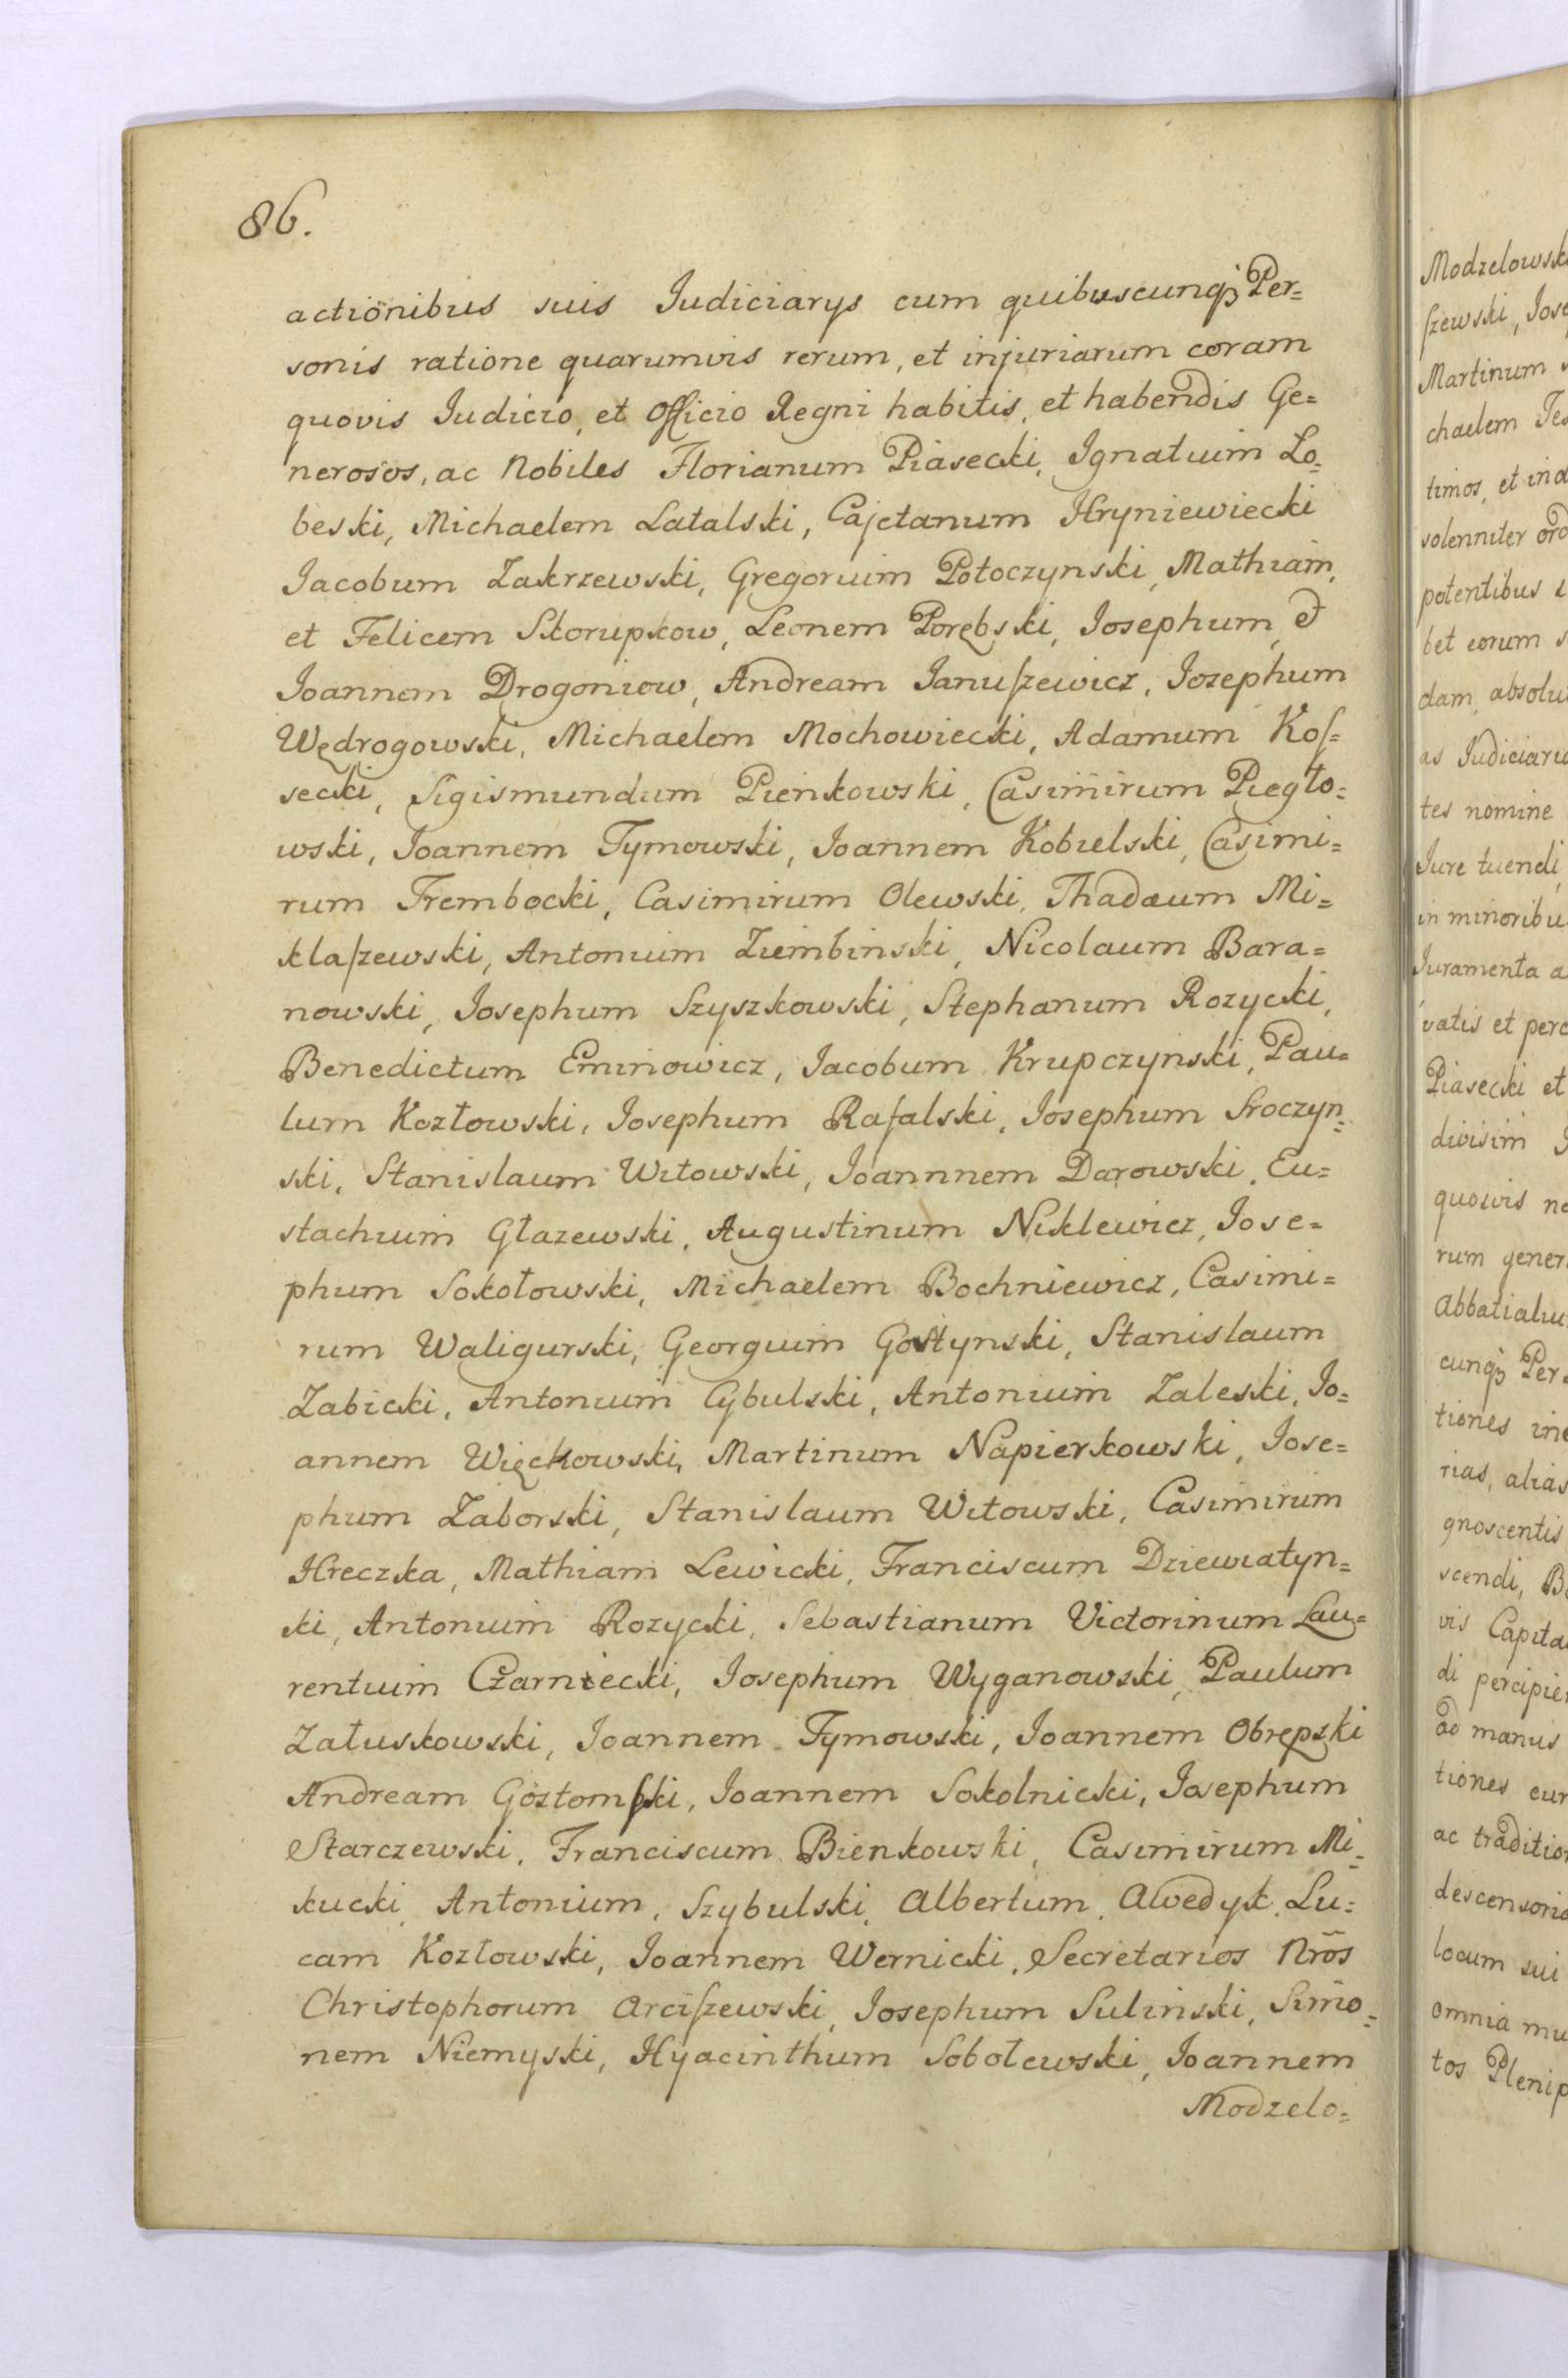 86.
actiönibus suis Judiciarys cum quibuscunqꝫ Per=
sonis ratione quarumvis rerum, et injuriarum coram
quovis Judicio, et Officio Regni habitis, et habendis Ge=
nerosos, ac Nobiles Florianum Piasecki, Ignatium Lo=
beski, Michaelem Latalski, Cajetanum Hryniewiecki
Jacobum Zakrzewski, Gregorium Potoczynski, Mathiam,
et Felicem Skorupkow, Leonem Porębski, Josephum, et
Joannem Drogoniow, Andream Januſzewicz, Jozephum
Wędrogowski, Michaelem Mochowiecki, Adamum Koſ=
secki, Sigismundum Pienkowski, Casimirum Piegło=
wski, Joannem Tymowski, Joannem Kobielski, Casimi=
rum Trembecki, Casimirum Olewski, Thadæum Mi=
klaſzewski, Antonium Ziembinski, Nicolaum Bara=
nowski, Josephum Szyszkowski, Stephanum Rozycki,
Benedictum Eminowicz, Jacobum Krupczynski, Pau=
lum Kozłowski, Josephum Rafalski, Josephum Sroczyn=
ski, Stanislaum Witowski, Joannnem Darowski, Eu=
stachium Głazewski, Augustinum Niklewicz, Jose=
phum Sokołowski, Michaelem Bochniewicz, Casimi=
rum Waligurski, Georgium Gostynski, Stanislaum
Zabicki, Antonium Cybulski, Antonium Zaleski, Jo=
annem Więckowski, Martinum Napierkowski, Jose=
phum Zaborski, Stanislaum Witowski, Casimirum
Hreczka, Mathiam Lewicki, Franciscum Dziewiatyn=
ki, Antonium Rozycki, Sebastianum Victorinum Lau=
rentium Czarniecki, Josephum Wyganowski, Paulum
Załuskowski, Joannem Tymowski, Joannem Obrępski
Andream Gozłomſki, Joannem Sokolnicki, Josephum
Starczewski, Franciscum Bienkowski, Casimirum Mi=
kucki, Antonium, Szybulski, Albertum, Awedyk, Lu=
cam Kozłowski, Joannem Wernicki, Secretarios Nrōs
Christophorum Arciſzewski, Josephum Sulinski, Simo=
nem Niemyski, Hyacinthum Sobolewski, Joannem
Modzelo=
Modzelowsk
ſzewski, Jose
Martinum
chaelem
timos, et ind
solenniter ord
potentibus
bet eorum
dam, absolu
as Judiciaria
tes nomine
Jure tuendi,
in minoribu
Juramenta a
vatis et perc
Piasecki et
divisim
quovis no
rum gener
Abbatialiu
cunqꝫ Per
tiones ine
rias, alias
gnoscentis
scendi, B
vis Capita
di percipie
ad manus
tiones cur
ac tradition
descensoria
locum sui
omnia mu
tos Plenip